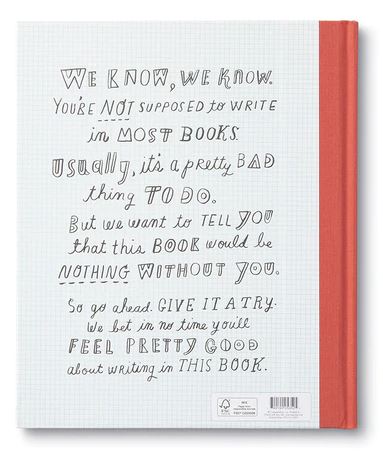 WE KNOW, WE KNOW.
YOU'RE NOT SUPPOSED TO WRITE
in MOST BOOKS.
Usually, it's a pretty BAD
thing TO DO.
But we want to TELL YOU
that this BOOK would be
NOTHING WITHOUT YOU.
So go ahead. GIVE IT A TRY.
We bet in no time you'll
FEEL PRETTY GOOD
about writing in THIS BOOK.
FSC
MIX